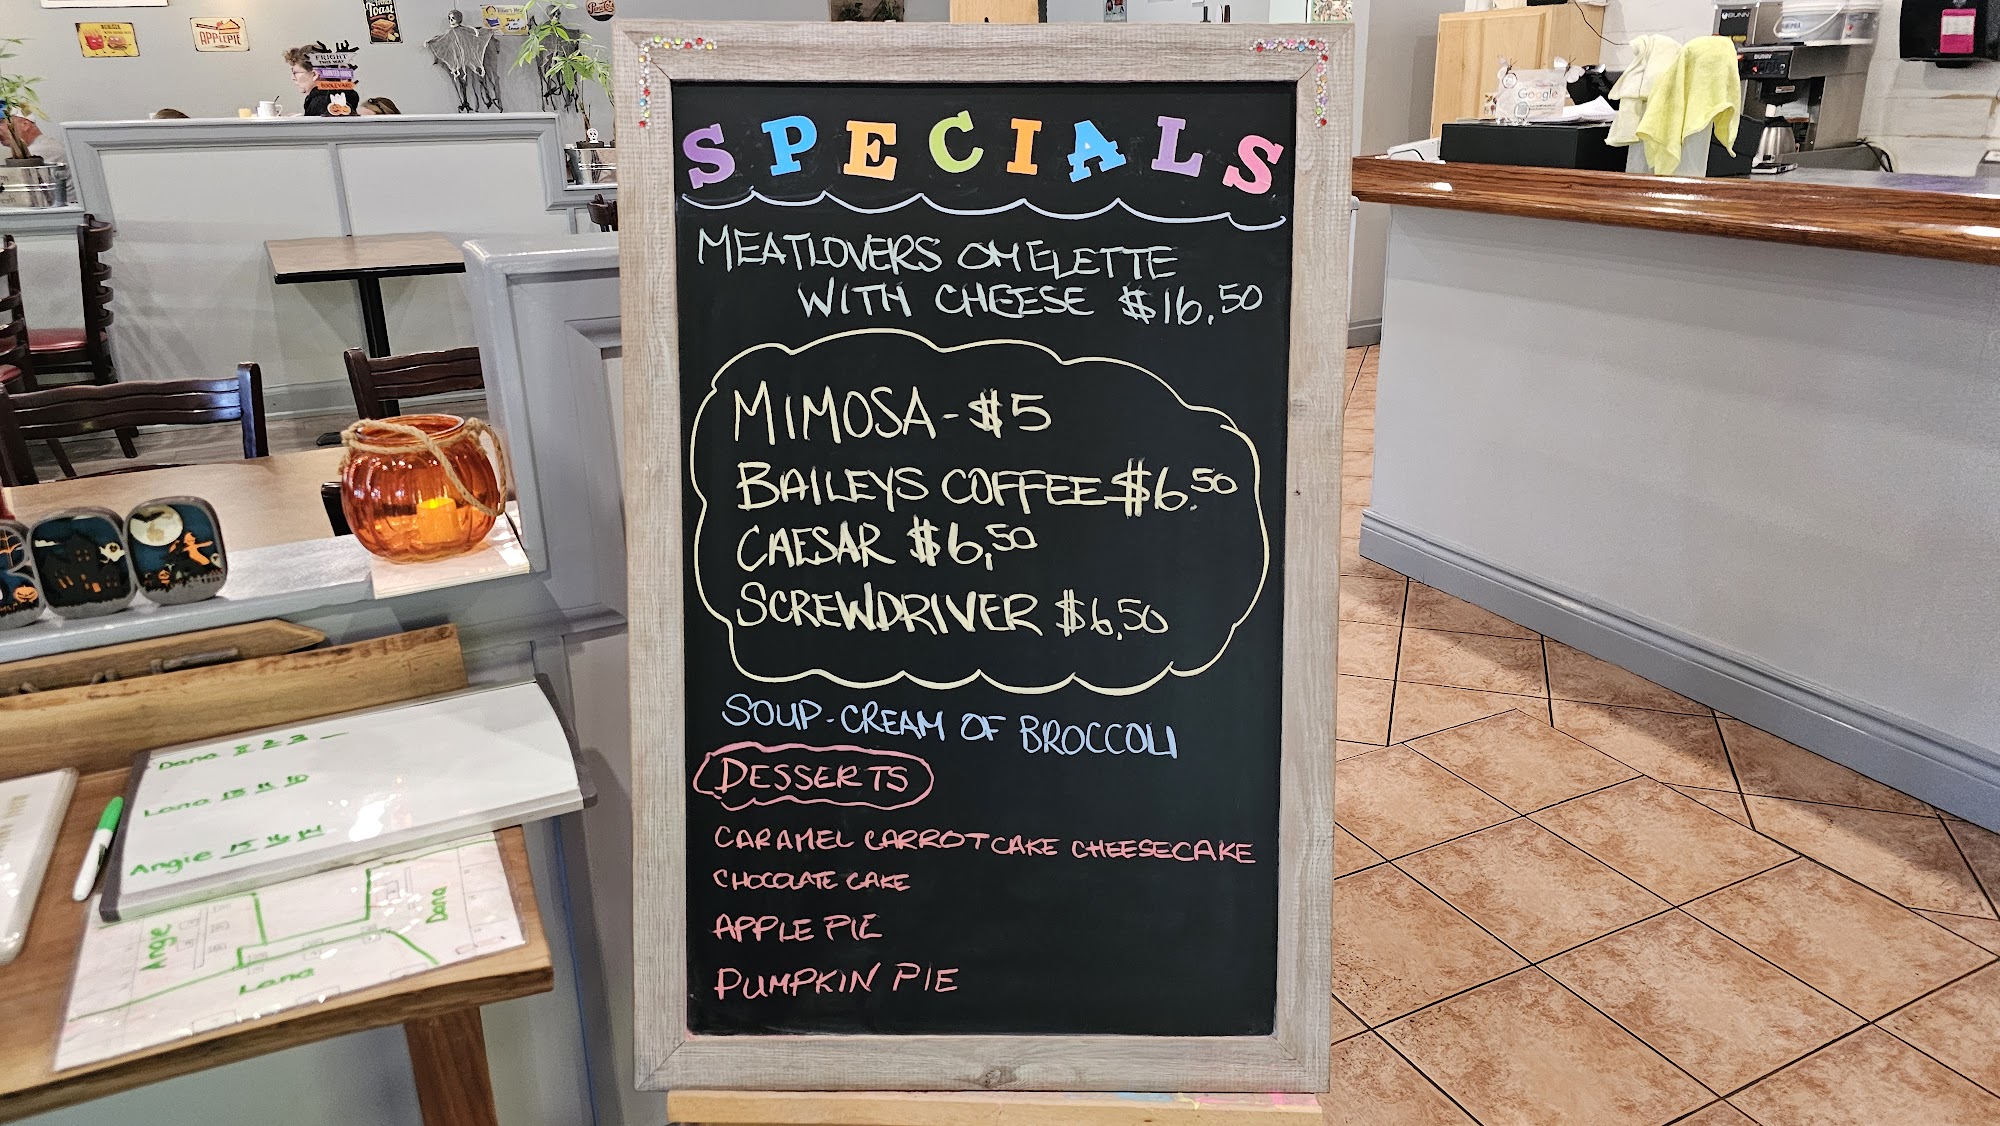 SPECIALS
MEATLOVERS OMELETTE
WITH CHEESE $16.50
MIMOSA - $5
BAILEYS COFFEE $6.50
CAESAR $6.50
SCREWDRIVER $6.50
SOUP - CREAM OF BROCCOLI
DESSERTS
CARAMEL CARROT CAKE CHEESECAKE
CHOCOLATE CAKE
APPLE PIE
PUMPKIN PIE
APPLE PIE
Toast
FRIGHT
BOOLEVARD
Google
BUNN
BUNN
Dana
Lana
Angie 15 16 14
Angie
Lana
Dana